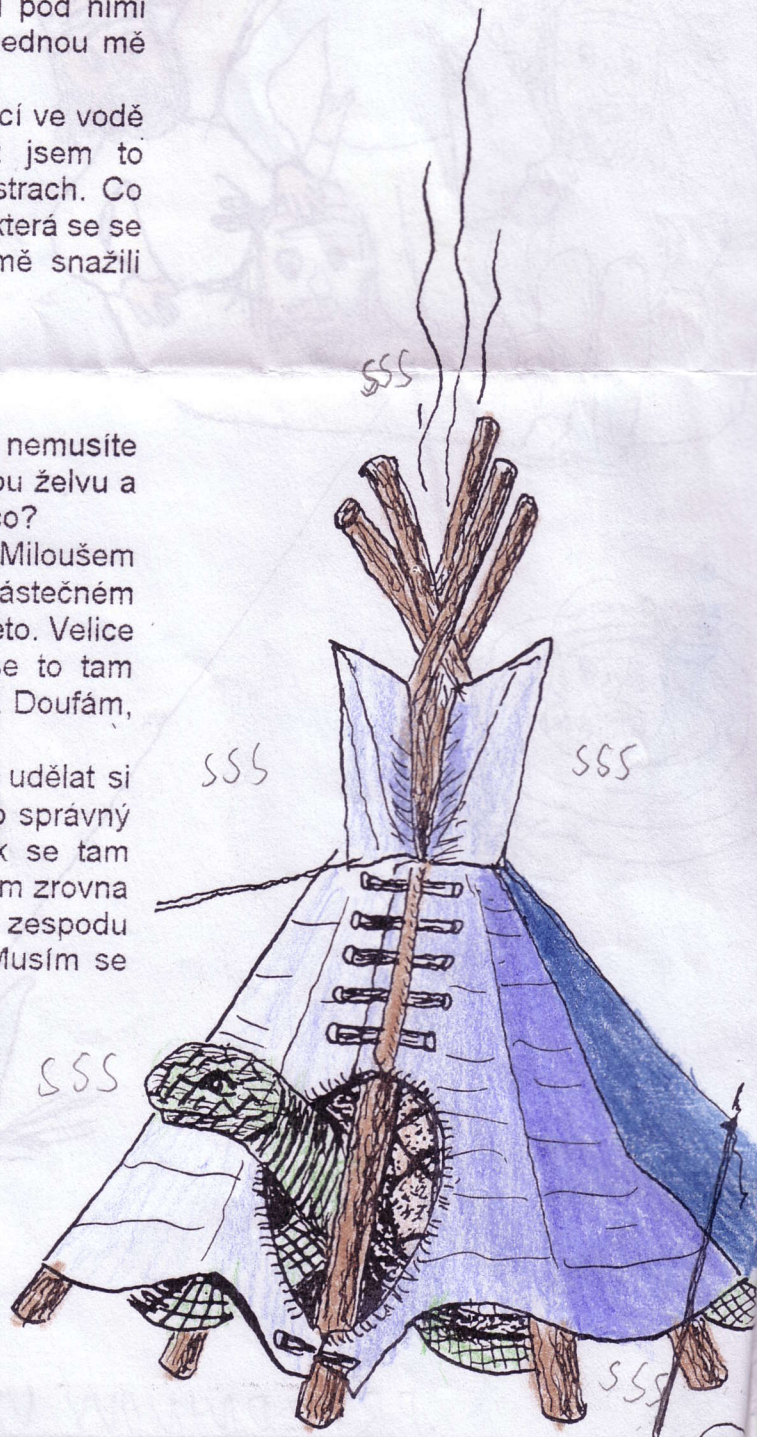 pod nimi
ednou mě
cí ve vodě
jsem to
strach. Co
která se se
mě snažili
sss
nemusíte
ou želvu a
co?
Miloušem
ástečném
eto. Velice
se to tam
Doufám,
udělat si
o správný
k se tam
m zrovna
zespodu
Musím se
sss
sss
sss
sss